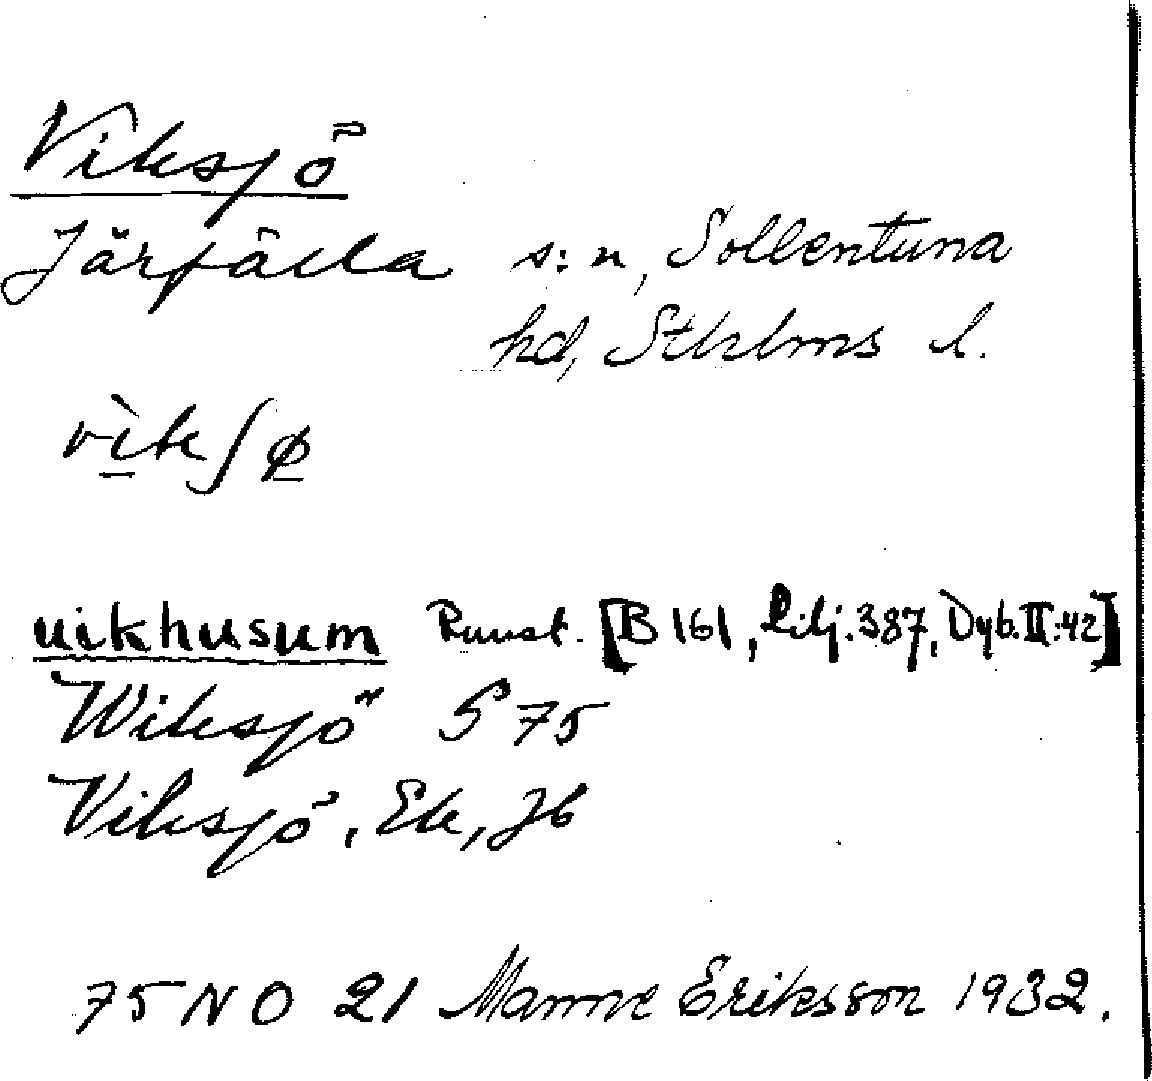 Viksjö
Järfälla s:n, Sollentuna
hd, Sthlms l.
vìkʃø
uikhusum Runst. [B 161, Lilj. 387, Dyb. II:42]
Wiksjö S 75
Viksjö, Ek, Jb
75 NO 21 Manne Eriksson 1932.